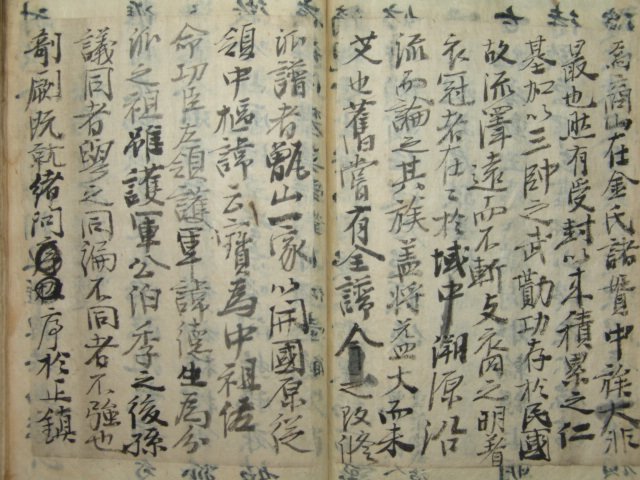 爲商山在金氏諸貫中族大非
最也然有受封以來積累之仁
基加以三帥之武勳功存於民國
故流澤遠而不斬文裔之明著
衣冠者在〻於域中溯源沿
流而論之其族盖將益大而未
艾也舊嘗有全譜今之改修
派譜者甑山一家以開國原從
領中樞諱云寶爲中祖佐
命功臣左領護軍諱德生爲分
派之祖雖護軍公伯季之後孫
議同者與之同編不同者不強也
剞劂旣就緒問序於正鎭